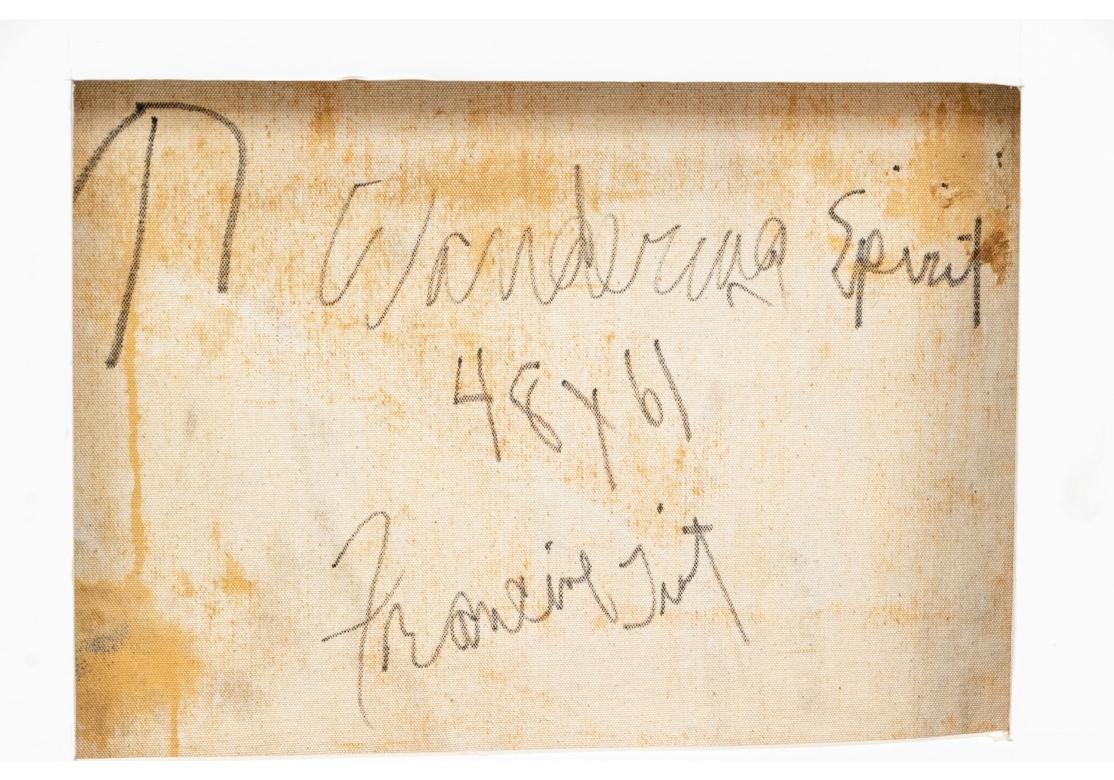 Wandering Spirit
48 x 61
Francine Tint